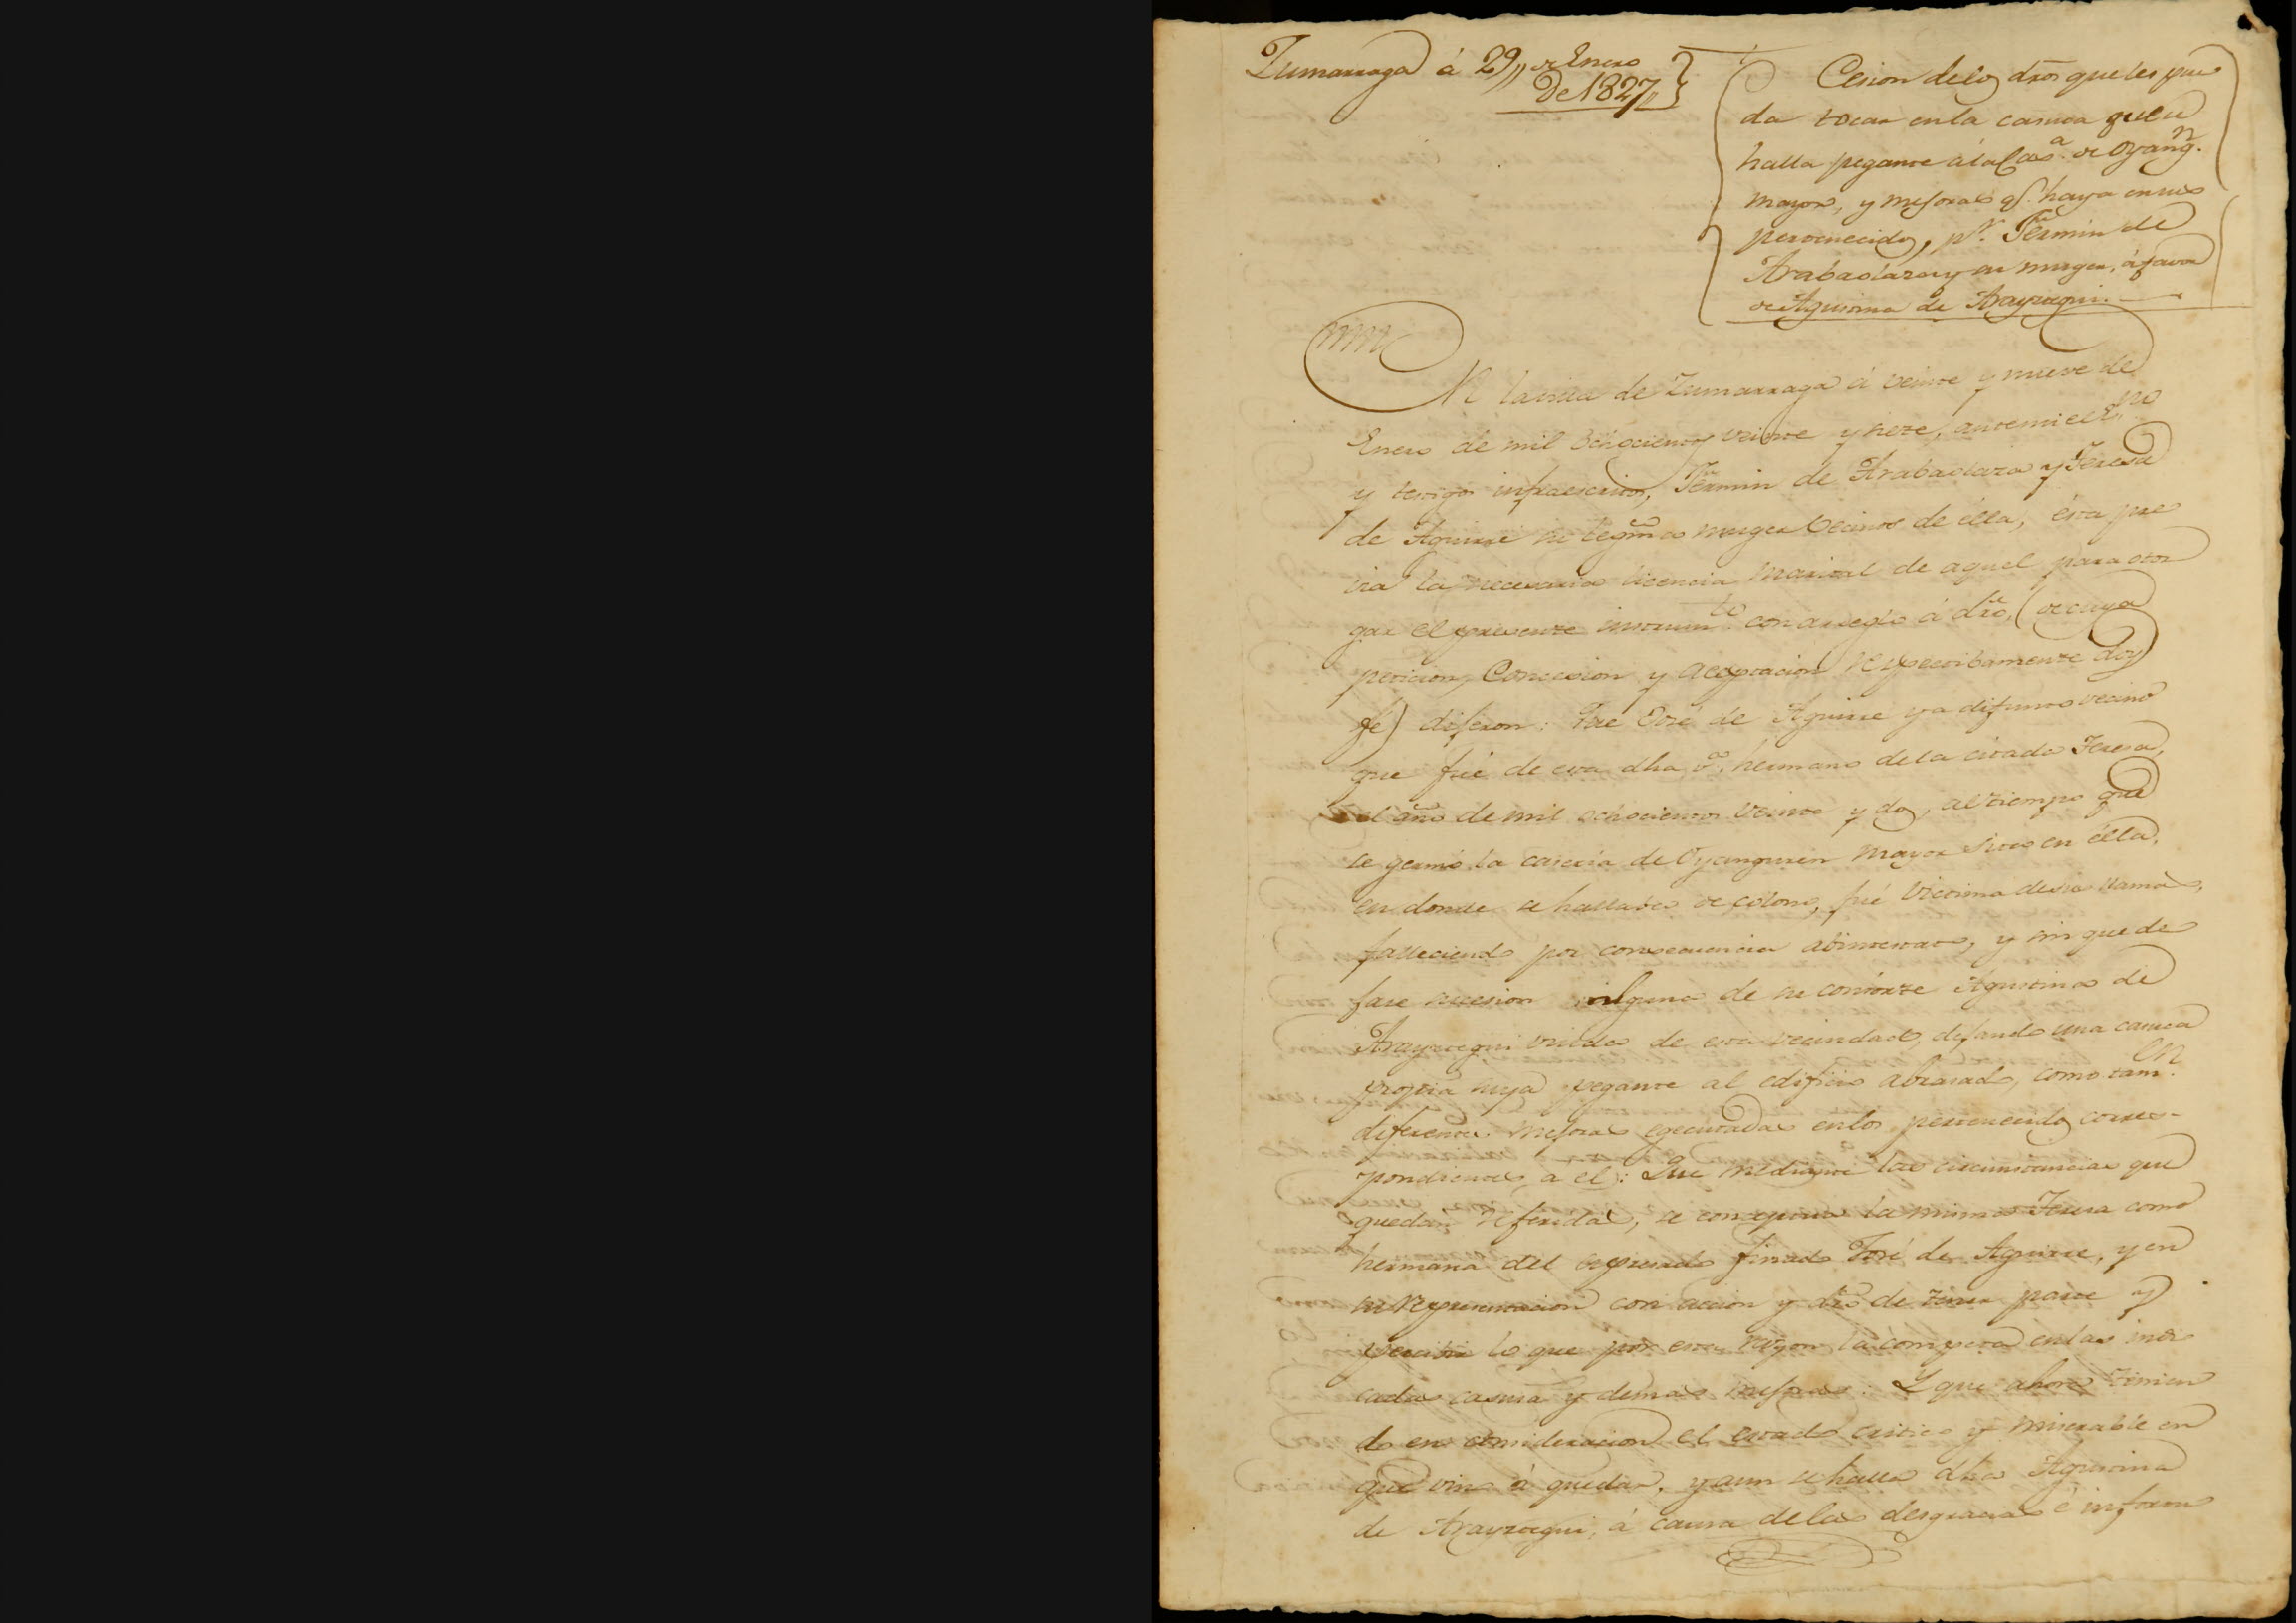 Zumarraga á 29,, de Enero
De 1827,,
Cesion de los dros que les pue
da tocar en la casita que se
halla pegante á la Casa. de Oyangn.
mayor, y mejoras q.e haya en sus
pertenecidos, pr. Fermin de
Arabaolaza y su muger, á favor
de Agustina de Arayztegui.
EN la villa de Zumarraga á veinte y nueve de
Enero de mil ochocientos veinte y siete, ante mi el Esno
y testigos infraescritos, Fermin de Arabaolaza y Teresa
de Aguirre su legma muger vecinos de élla, ésta pre
via la necesaria licencia marital de aquel para otor
gar el presente instrumto. con arreglo á dro, (de cuya
peticion, Concesion y aceptacion respectibamente doy
fé) dijeron: Que José de Aguirre ya difunto vecino
que fué de esta dha va, hermano de la citada Teresa,
el año de mil ochocientos veinte y dos, al tiempo que
se quemó la casería de Oyanguren mayor sita en élla,
en donde se hallaba de colono, fué victima de sus llamas,
falleciendo por consecuencia abintestato, y sin que de
jase sucesion alguna de su consorte Agustina de
Arayztegui viuda de esta vecindad, dejando una casita
propia suya pegante al edificio abrasado, como tamn.
diferentes mejoras egecutadas en los pertenecidos corres-
pondientes á el: Que mediante las circunstancias que
quedan referidas, se conceptua la misma Teresa como
hermana del expresado finado José de Aguirre, y en
su representacion con accion y dro de tener parte y
percibir lo que por esta razon la competa en las indi
cadas casita y demas mejoras: Y que ahora tenien
do en consideracion el estado critico y miserable en
que vino á quedar, y aun se halla dha Agustina
de Arayztegui, á causa de las desgracias é infortu